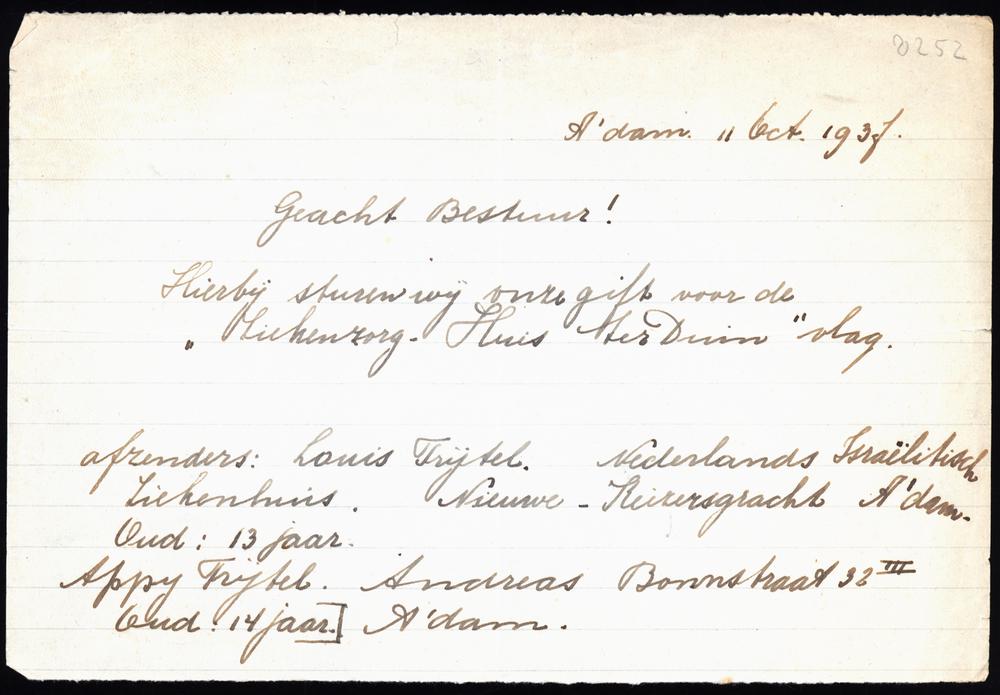 0252
A'dam. 11 Oct. 1937.
Geacht Bestuur!
Hierbij sturen wij onze gift voor de
„Ziekenzorg- Huis ter Duin" vlag.
afzenders: Louis Frijtel. Nederlands Israëlitisch
Ziekenhuis. Nieuwe - Keizersgracht A'dam-
Oud: 13 jaar.
Appy Frijtel. Andreas Bonnstraat 32 III
Oud: 14 jaar.] A'dam.